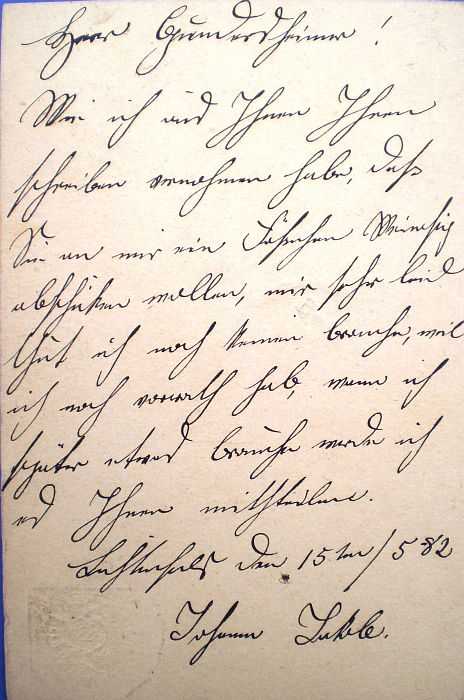 Herr Gundersheimer!
Wie ich aus Ihren Ihren
schreiben vernohmen habe, daß
Sie an mir ein Fäschen Weinessig
abschiken wollen, mir sehr leid
thut ich noch keinen brauche, weil
ich noch vorrath hab, wenn ich
später etwas brauche werde ich
es Ihnen mittheilen.
Lichtenfels den 15ten/5 82
Johann